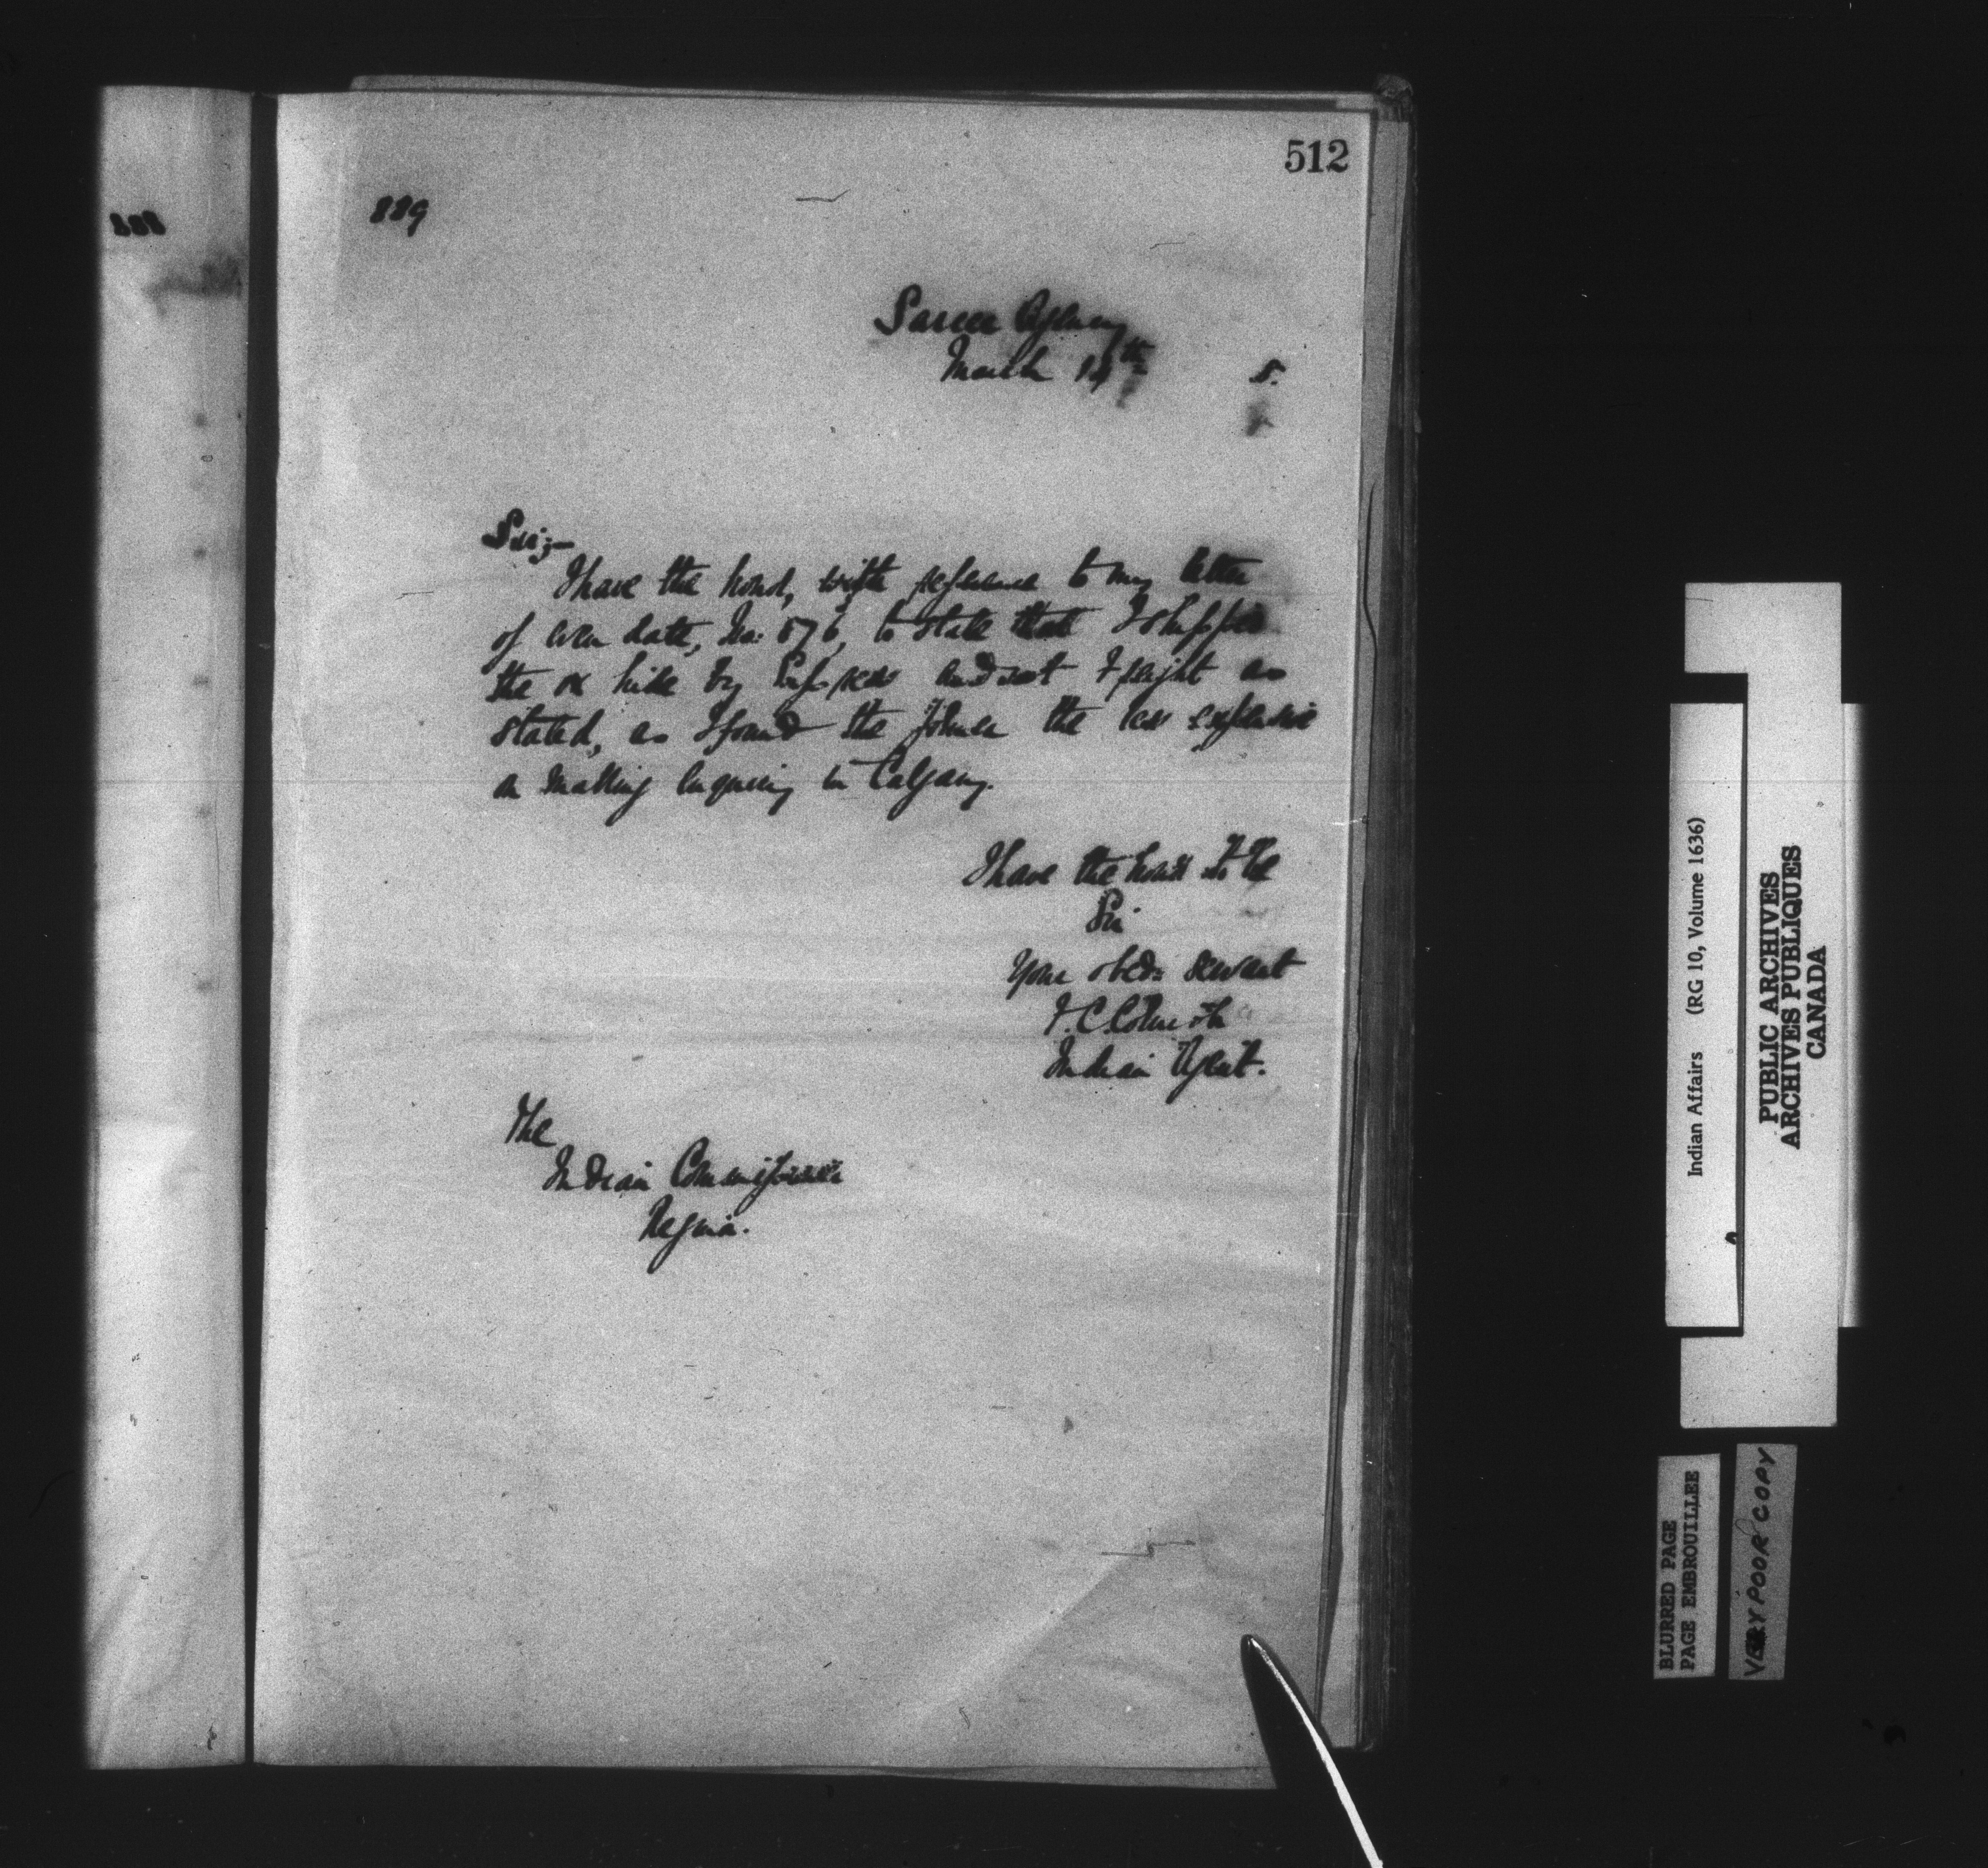 512
888
889
Sarcee Agency
March 14th 5.
Sir;-
I have the honor, with reference to my letter
of even date, No: 876, to state that I shipped
the ox hide by Express and not Freight as
stated, as I found the former the less expensive
on making enquiry in Calgary.
I have the honor to be
Sir
Your obedt servant
Indian Agent.
The
Indian Commissioner
Regina.
Indian Affairs (RG 10, Volume 1636)
PUBLIC ARCHIVES
ARCHIVES PUBLIQUES
CANADA
BLURRED PAGE
PAGE EMBROUILLEE
VERY POOR COPY